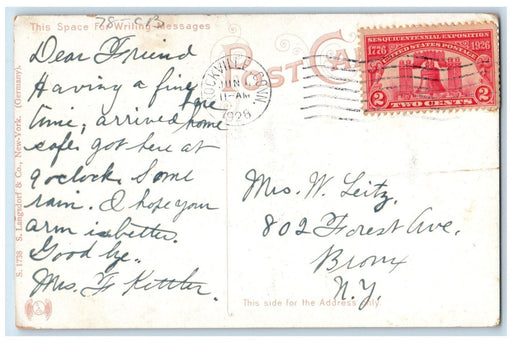 78-C13
This Space For Writing Messages
POST CARD
Dear Friend
Having a fine
time, arrived here home
safe got here at
9 oclock. Some
rain. I hope your
arm is better.
Good bye.
Mrs. F Kittler.
S. 1738 S. Langsdorf & Co., New-York. (Germany).
ROCKVILLE CONN.
JUN
11-AM
SESQUICENTENNIAL EXPOSITION
1776 UNITED STATES POSTAGE 1926
2 TWO CENTS 2
Mrs. W. Leitz,
802 Forest Ave.
Bronx
N.Y.
This side for the Address only.